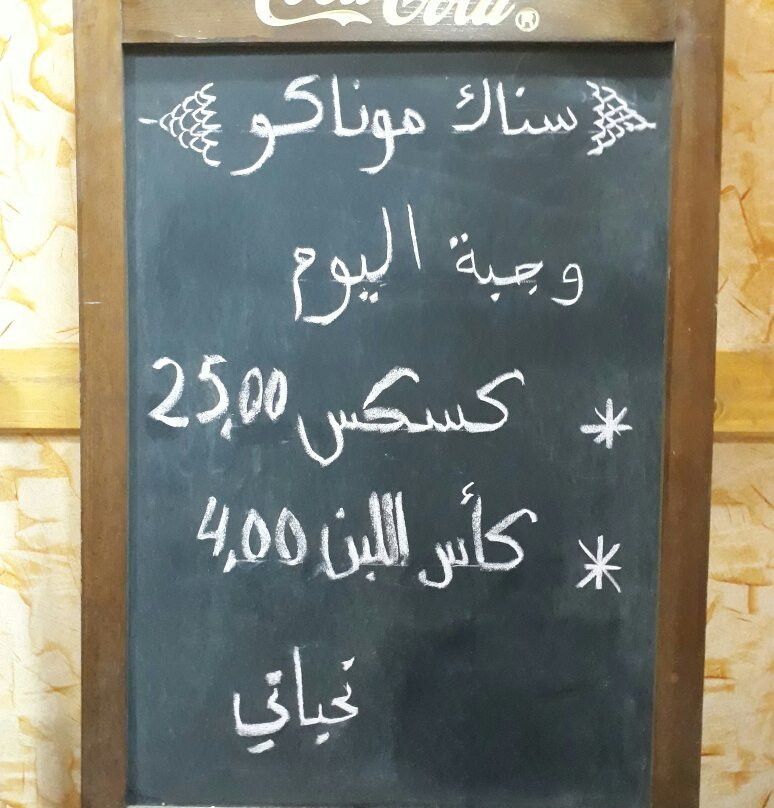 Coca Cola®
سناك موناكو
وجبة اليوم
* كسكس 25,00
* كأس اللبن 4,00
تحياتي